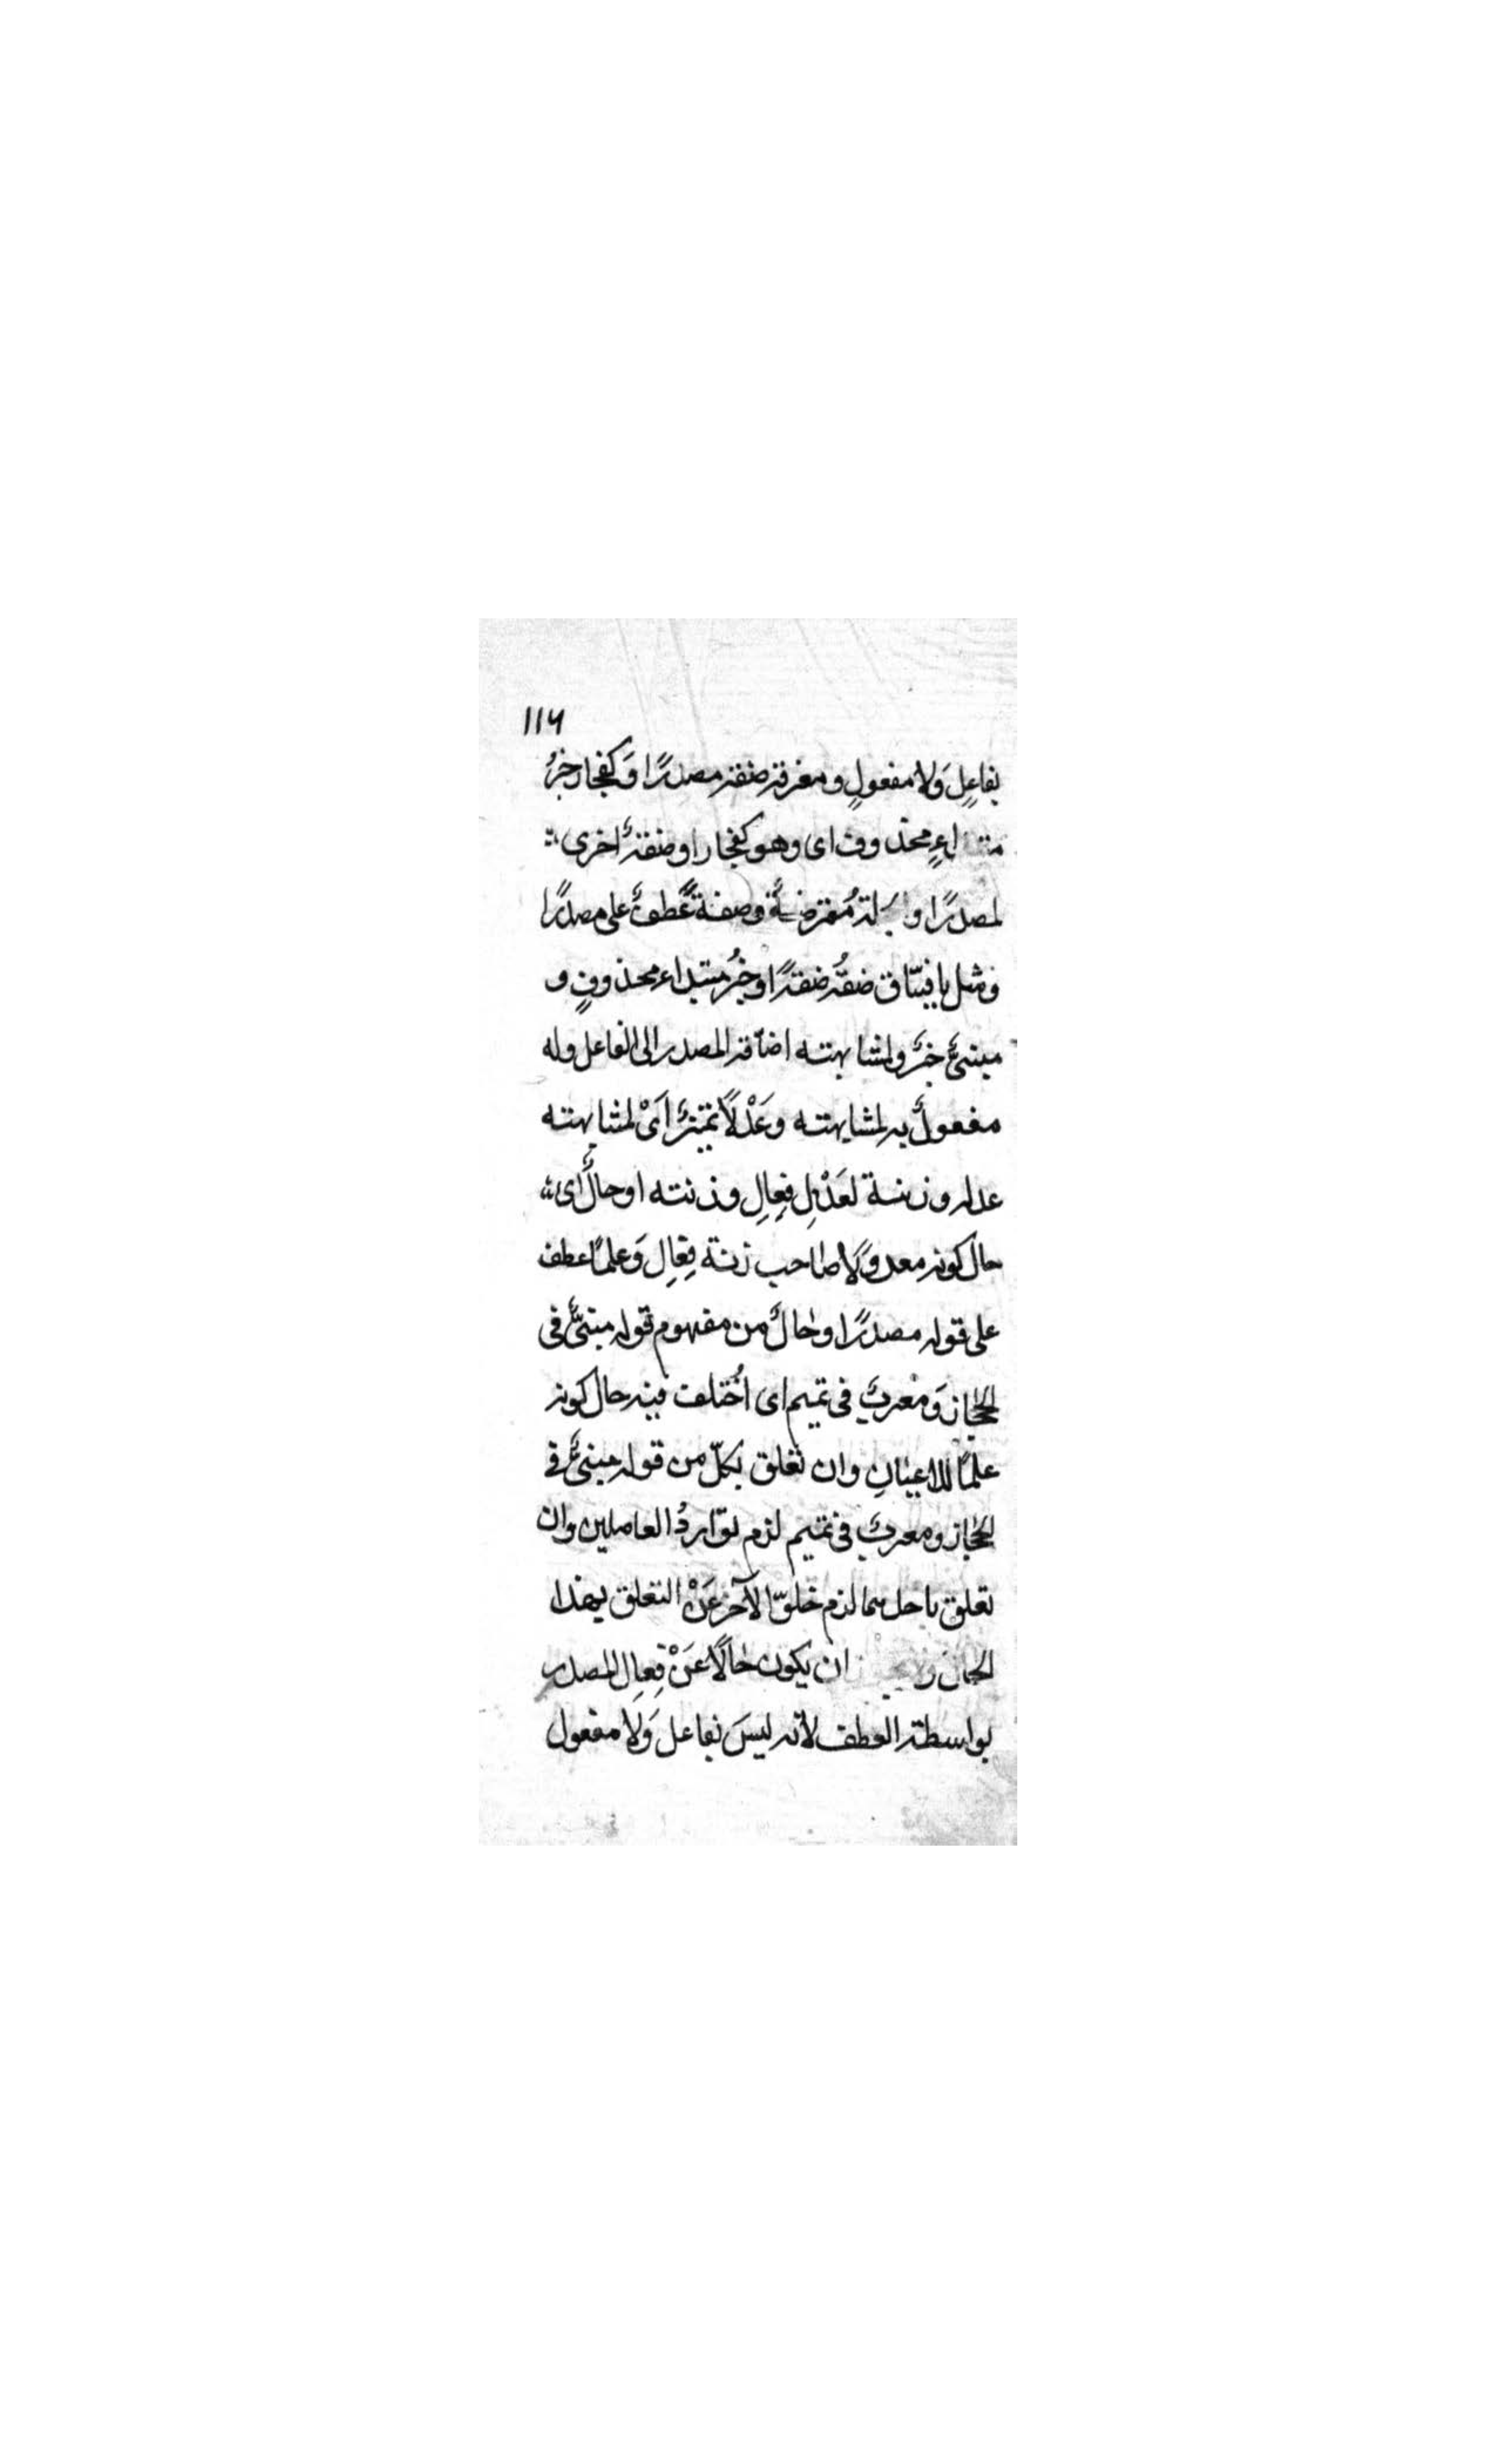 ١١٦
بفاعِلٍ وَلا مفعولٍ ومعرفة صفة مصدرًا وَكفجارِ خبرُ
محذوف اى وهو كفجار او صفةٌ اخرى
لمصدرًا و معترضةٌ وصفةً عطفٌ على مصدرًا
ومثل يا فسّاق صفةُ صفةً او خبرُ مبتداءٍ محذوفٍ و
مبنىٌّ خبرٌ ولمشابهته اضافة المصدر الى الفاعل وله
مفعولٌ به لمشابهته وعَدْلًا تمييزٌ اَىْ لمشابهته
عدله وزنة لعَدْلِ فِعالِ وزنته او حالٌ اى
حال كونه معدولًا صاحب زنة فِعَالِ وَعلمًا عطف
على قوله مصدرًا وحالٌ من مفهوم قوله مبنىٌّ فى
الحجاز وَمعربٌ فى تميم اى اُختلف فيه حال كونه
علمًا للاعيانِ وان تعلق بكلّ من قوله مبنىٌّ فى
الحجاز ومعربٌ فى تميم لزم تواردُ العاملين وان
تعلق باحدهما لزم خلوّ الآخر عَنْ التعلق بهذا
ان يكون حالًا عَنْ فِعالِ المصدر
بواسطة العطف لانه ليسَ بفاعل وَلا مفعول